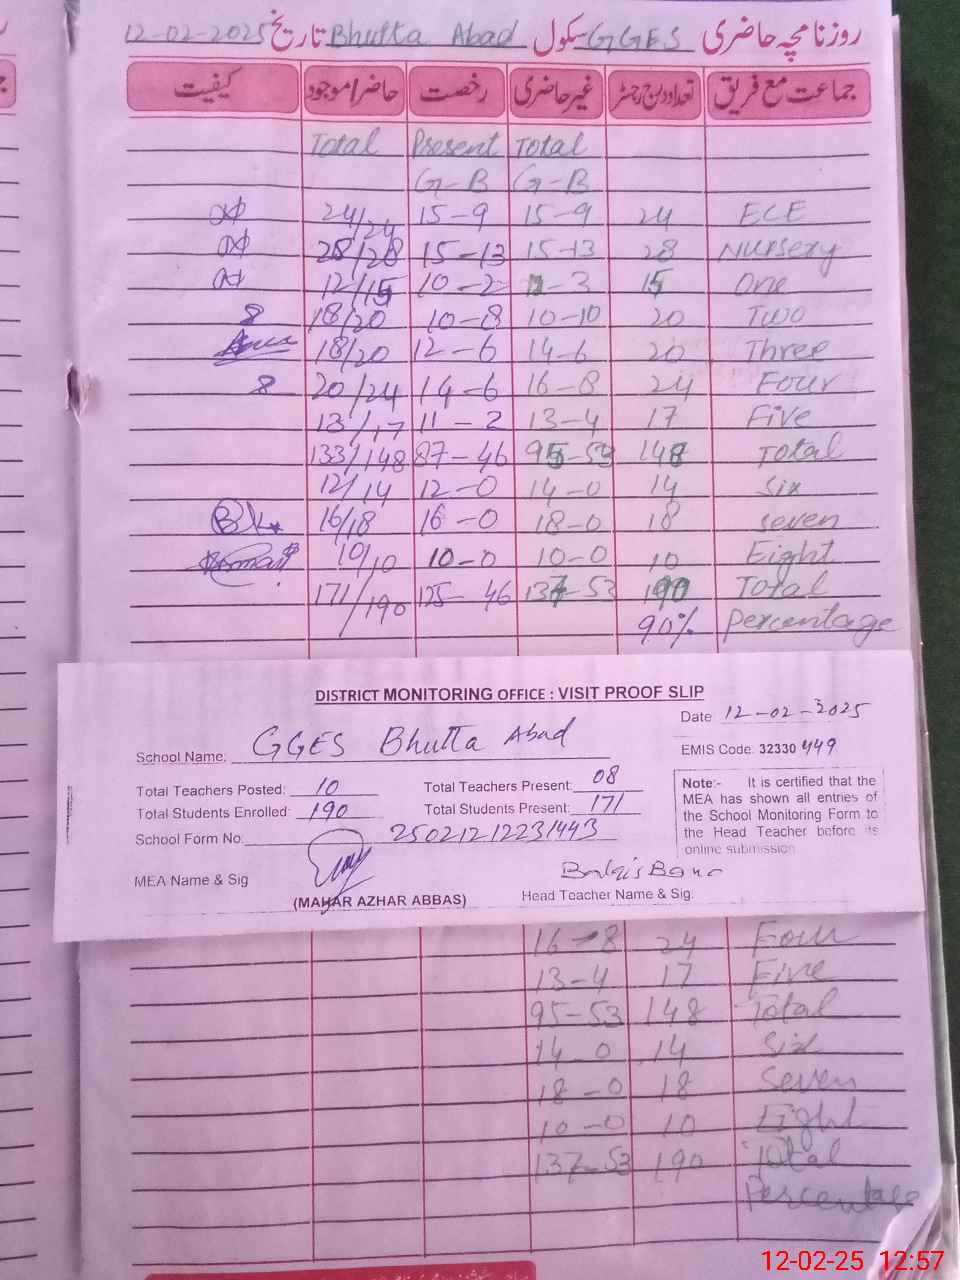 روزنامچہ حاضری GGES سکول Bhutta Abad تاریخ 12-02-2025
جماعت مع فریق تعداد درج رجسٹر غیر حاضری رخصت حاضر/موجود کیفیت
Total Present Total
G-B G-B
24/24 15-9 15-9 24 ECE
28/28 15-13 15-13 28 Nursery
12/15 10-2 12-3 15 One
8 18/20 10-8 10-10 20 Two
18/20 12-6 14-6 20 Three
8 20/24 14-6 16-8 24 Four
13/17 11-2 13-4 17 Five
133/148 87-46 95-53 148 Total
12/14 12-0 14-0 14 Six
16/18 16-0 18-0 18 seven
10/10 10-0 10-0 10 Eight
171/190 125-46 137-53 190 Total
90% percentage
DISTRICT MONITORING OFFICE : VISIT PROOF SLIP
Date 12-02-2025
School Name: GGES Bhutta Abad
EMIS Code: 32330 449
Total Teachers Posted: 10 Total Teachers Present: 08
Total Students Enrolled: 190 Total Students Present: 171
School Form No: 25021212231443
Note:- It is certified that the
MEA has shown all entries of
the School Monitoring Form to
the Head Teacher before its
online submission
MEA Name & Sig
(MAHAR AZHAR ABBAS)
Balqis Bano
Head Teacher Name & Sig:
16-8 24 Four
13-4 17 Five
95-53 148 Total
14-0 14 Six
18-0 18 Seven
10-0 10 Eight
137-53 190 Total
Percentage
12-02-25 12:57